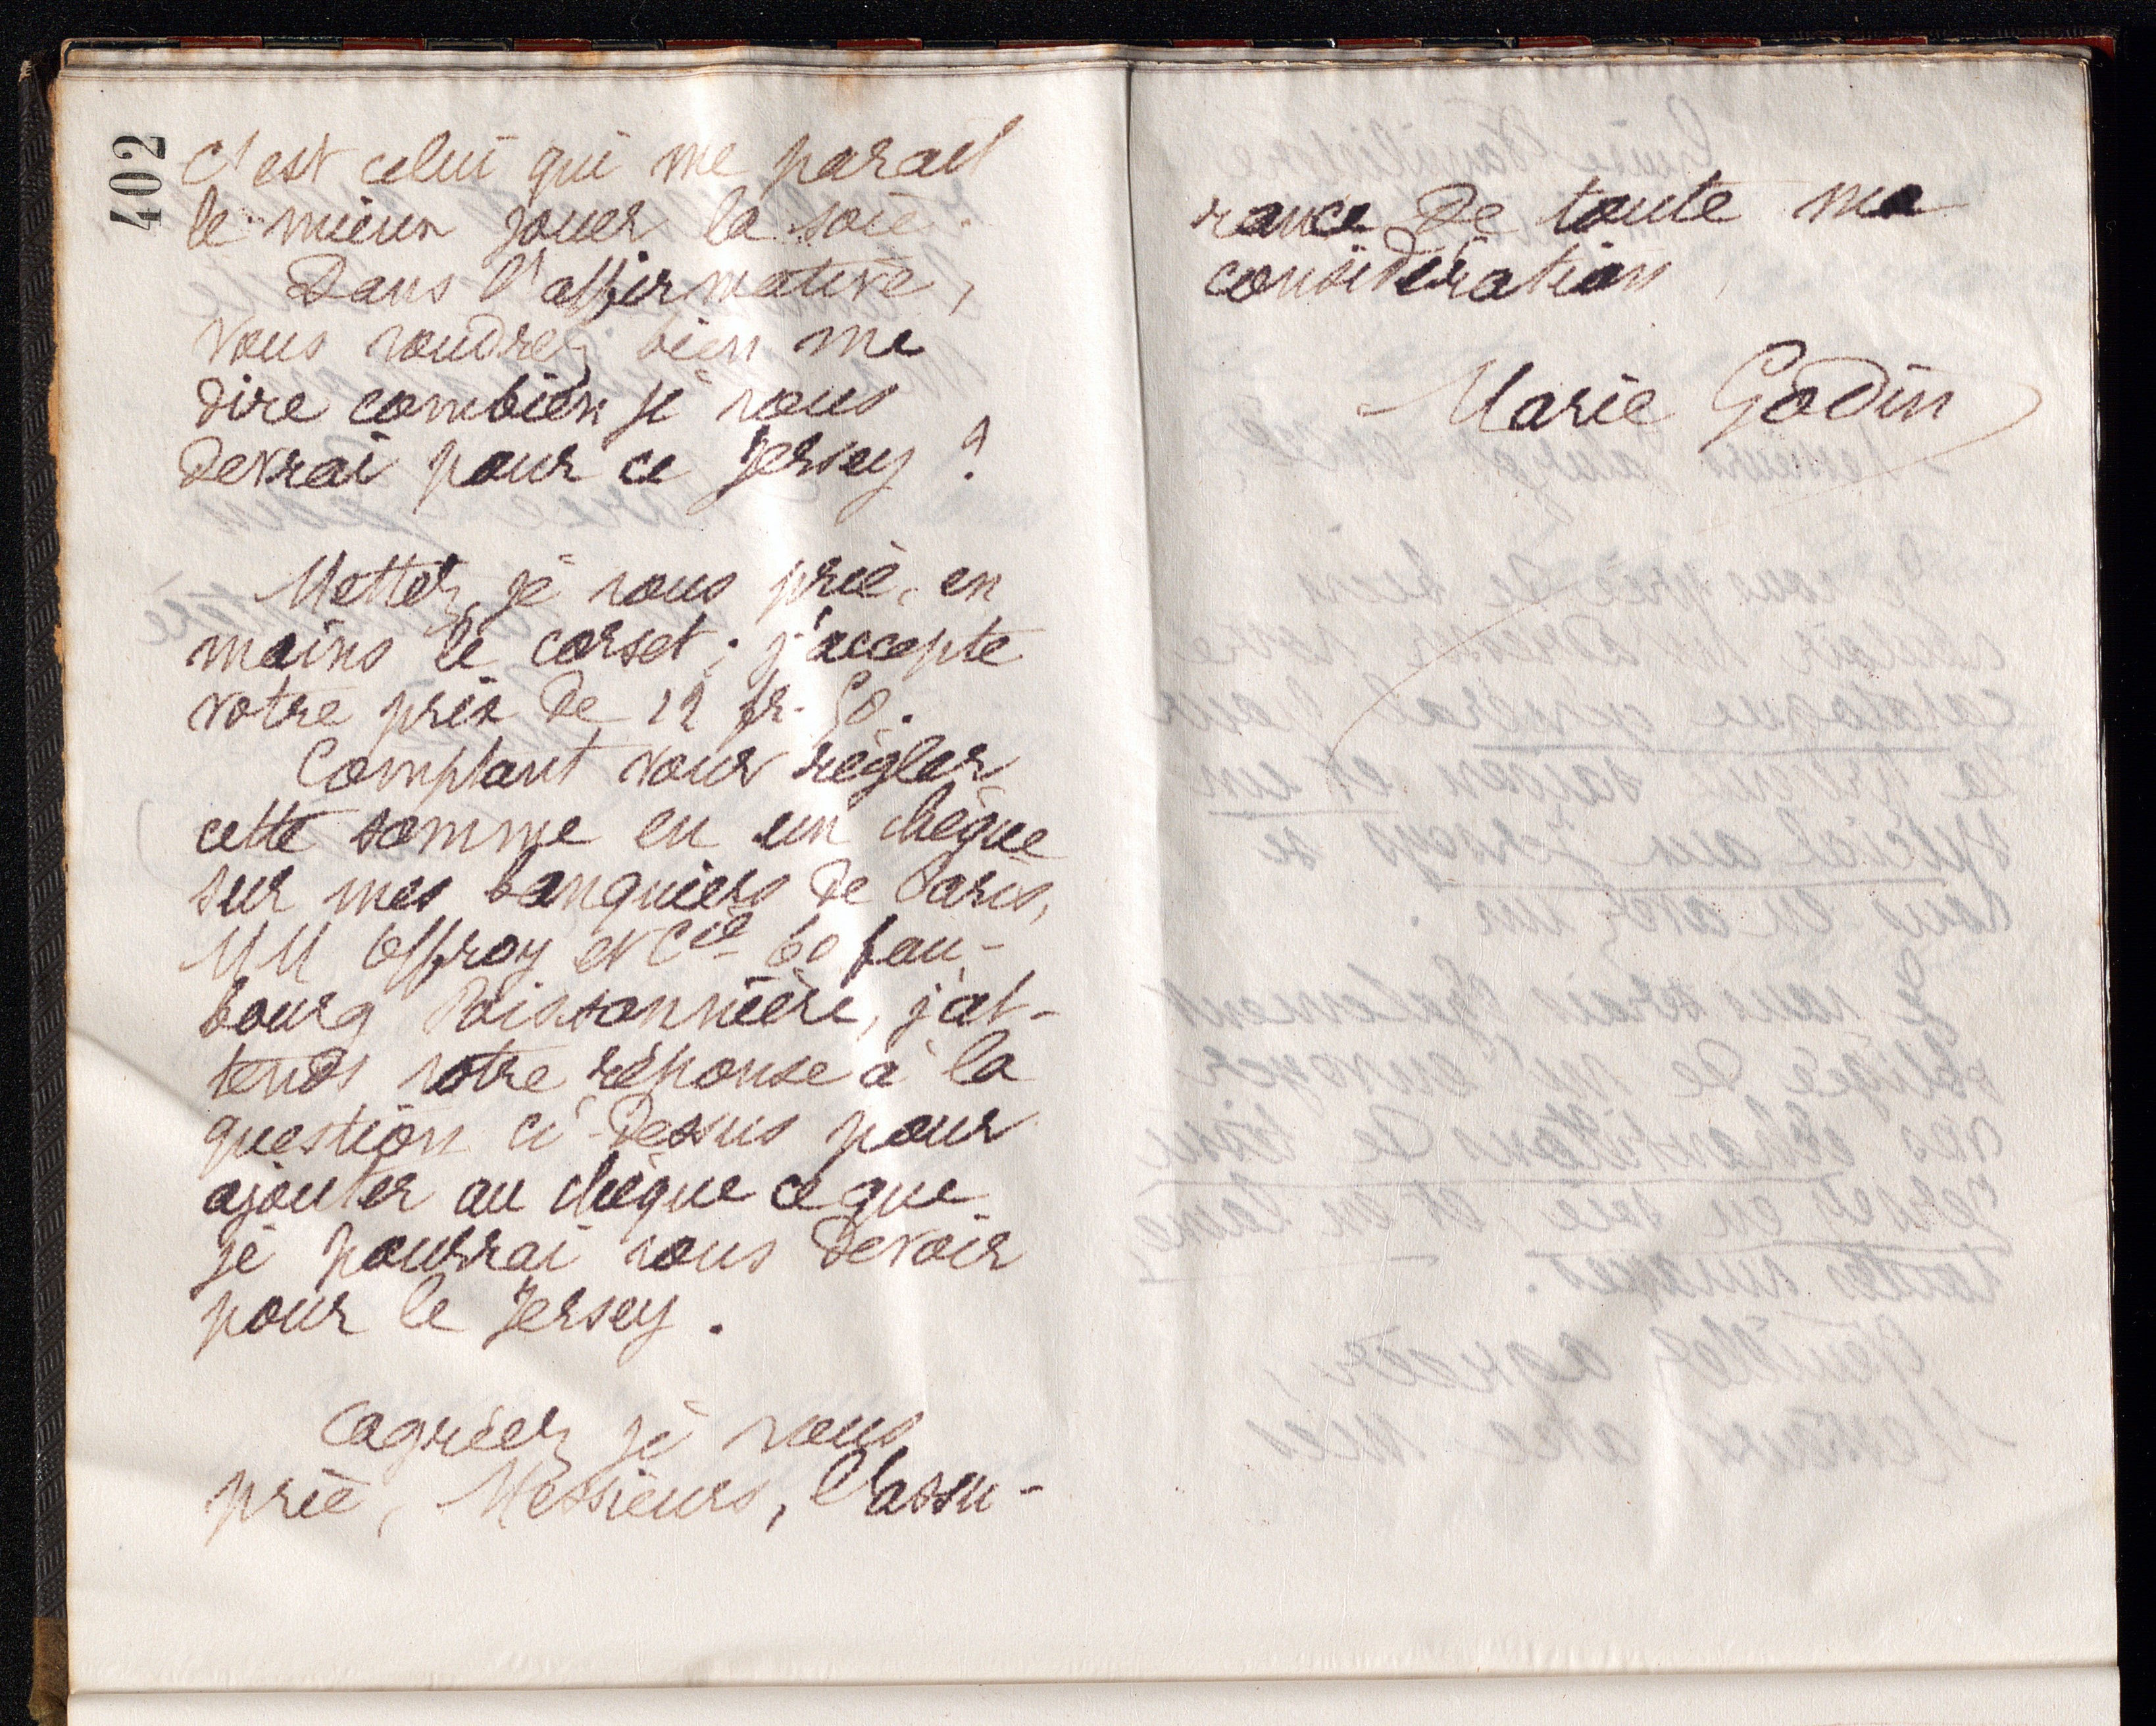 402
c'est celui qui me paraît
le mieux jouer la soie.
Dans l'affirmative,
vous voudrez bien me
dire combien je vous
devrai pour ce Jersey ?
Mettez, je vous prie, en
mains le corset ; j'accepte
votre prix de 12 fr. 50.
Comptant vous régler
cette somme en un chèque
sur mes banquiers de Paris,
MM Offroy et Cie 60 fau-
bourg Poissonnière, j'at-
tends votre réponse à la
question ci-dessus pour
ajouter au chèque ce que
je pourrai vous devoir
pour le Jersey.
Agréez je vous
prie, Messieurs, l'assu-
rance de toute ma
considération,
Marie Godin